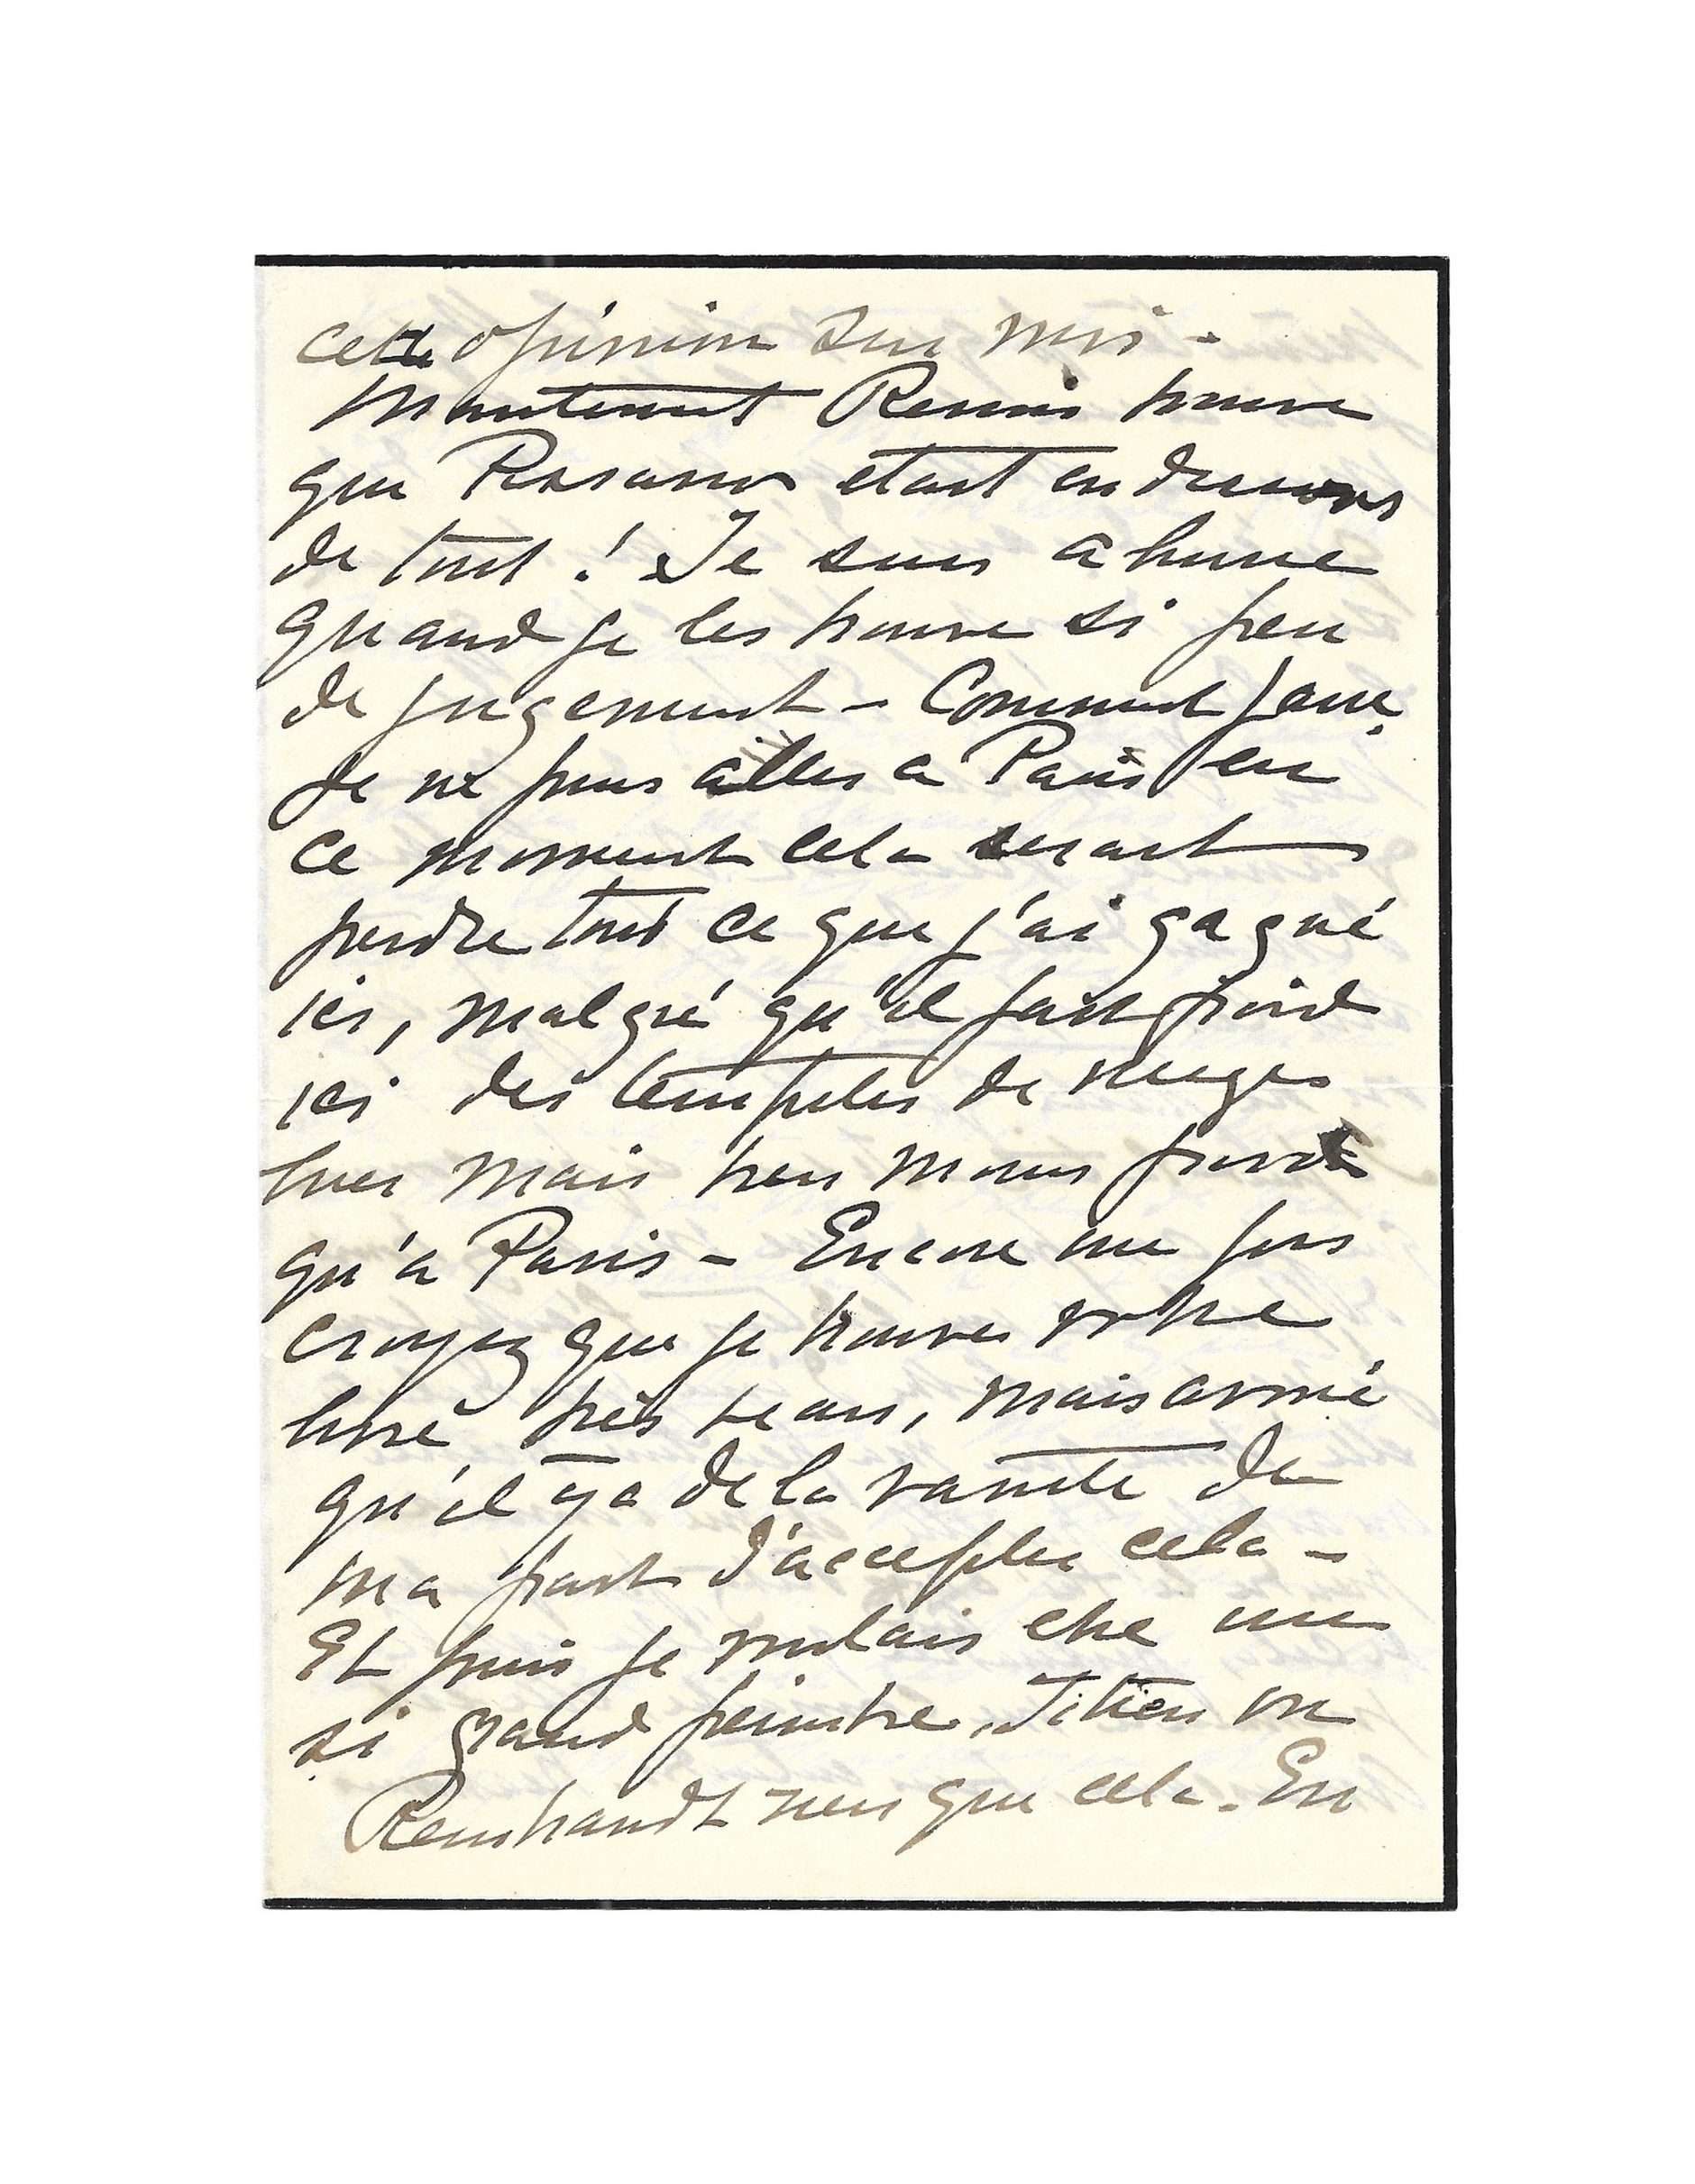 cette opinion sur moi -
Maintenant Renoir trouve
que Pissarro etait au dessous
de tout ! Je suis ahurie
quand je les trouve si peu
de jugement - Comment faire,
Je ne puis aller a Paris en
ce moment cela serait
perdre tout ce que j'ai gagné
ici, malgré qu'il fait froid
ici des tempetes de neiges
hier mais bien moins froid
qu'a Paris - Encore une fois
croyez que je trouve votre
livre très beau, mais avoué
qu'il y a de la vanité de
ma part d'accepter cela -
Et puis je voulais etre un
si grand peintre, Titien ou
Rembrandt rien que cela. En